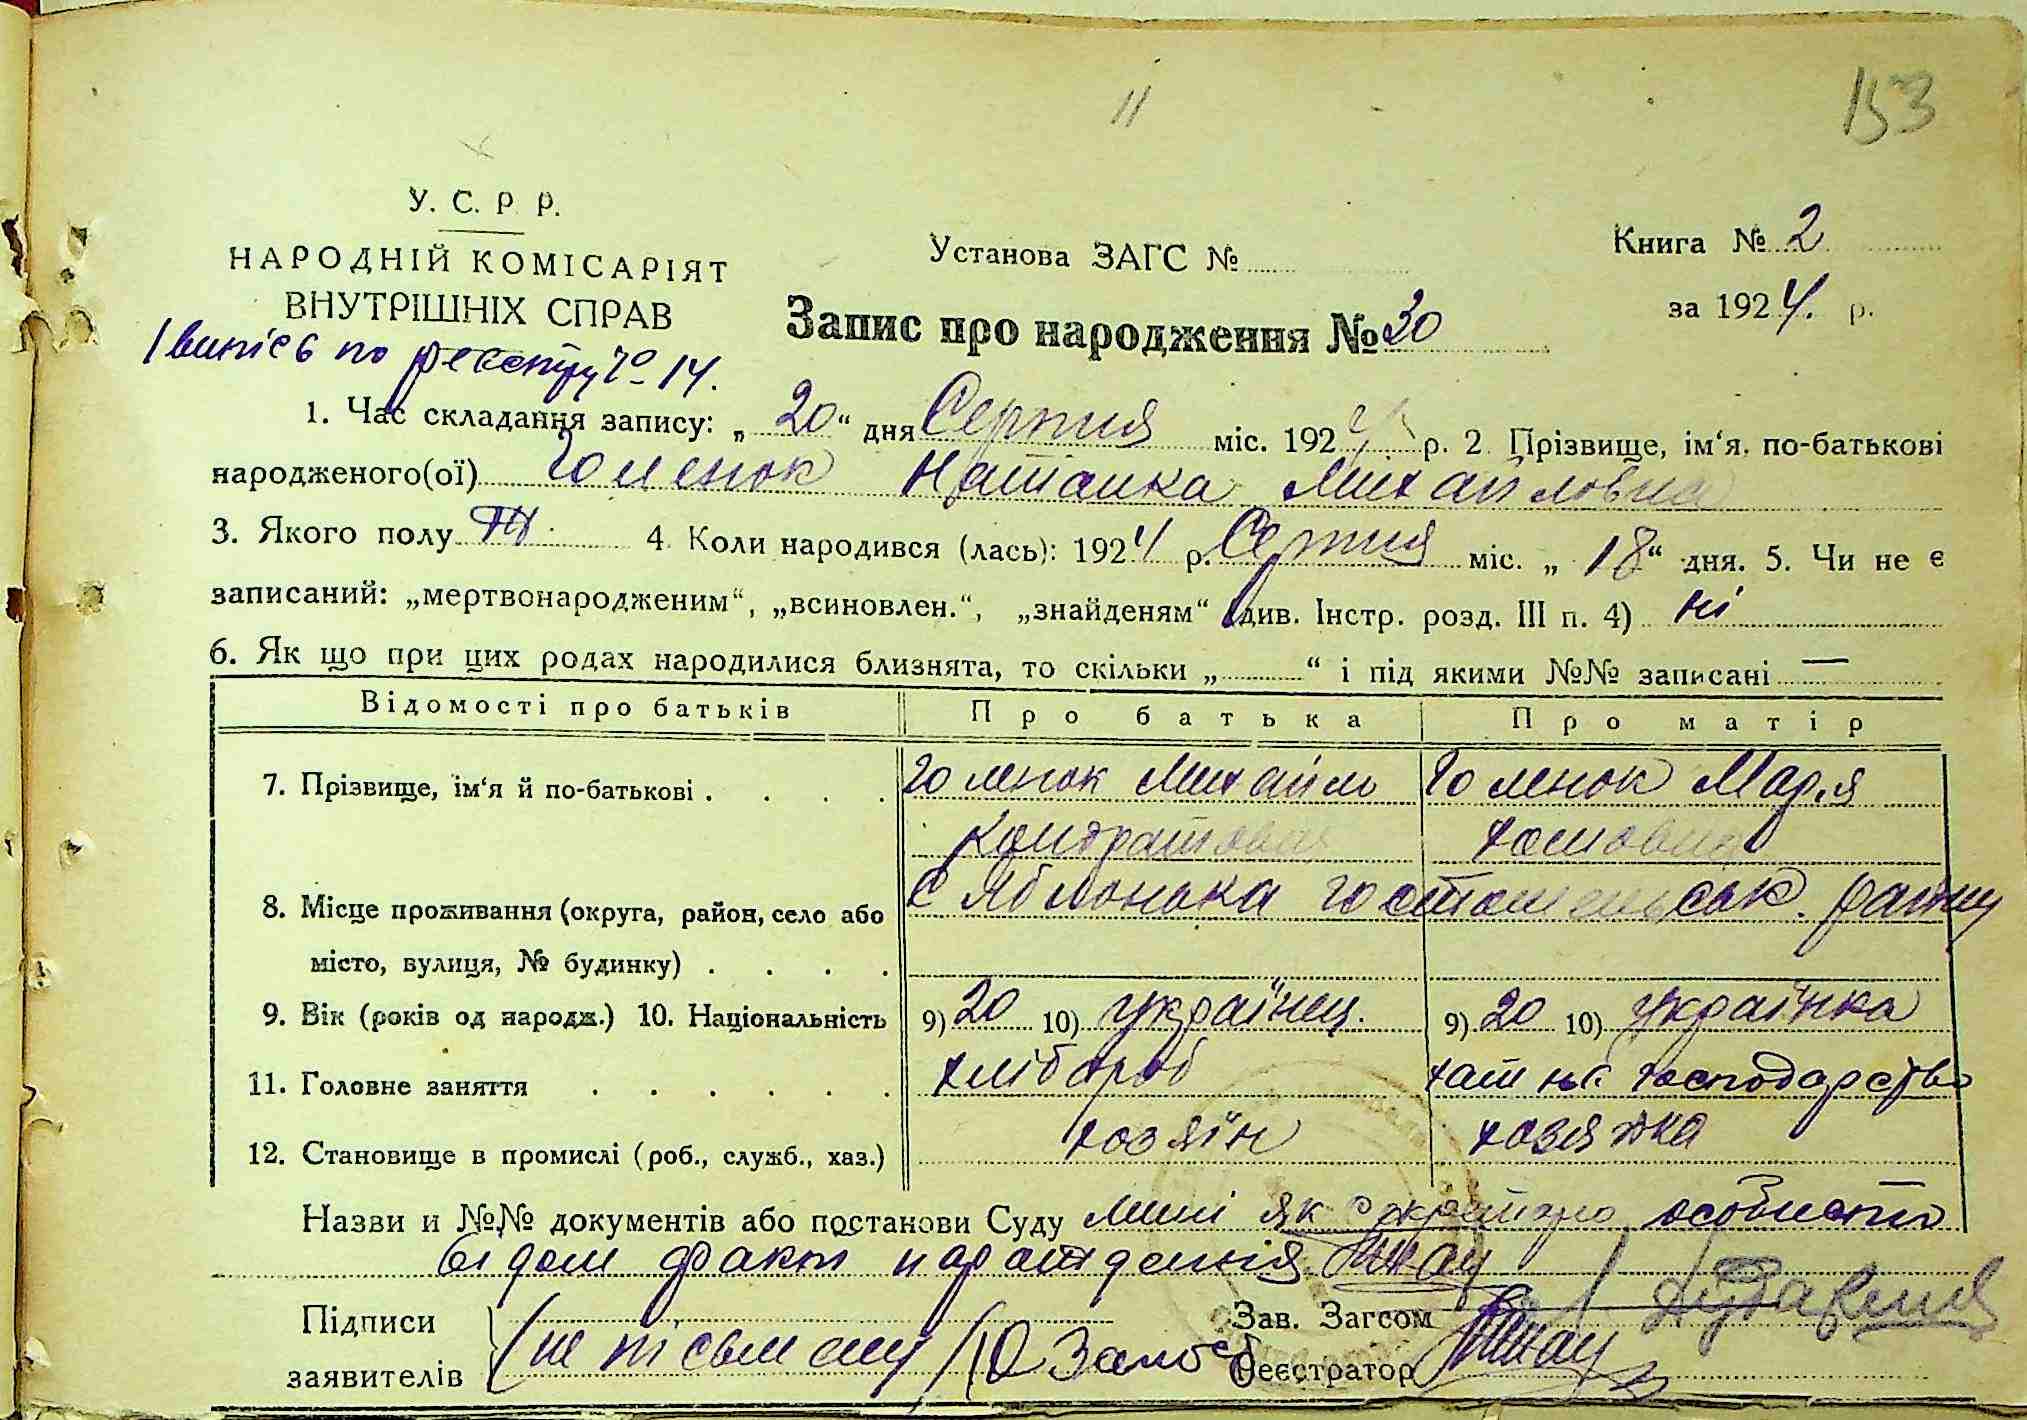 11
153
У. С. Р. Р.
НАРОДНІЙ КОМІСАРІЯТ
ВНУТРІШНІХ СПРАВ
Установа ЗАГС №
Книга № 2
за 1924. р.
Запис про народження № 30
1 випіс по реєстру № 14.
1. Час складання запису: „ 20 “ дня Серпня міс. 1924 р. 2. Прізвище, ім‘я, по-батькові
народженого(ої) Голенок Наталка Михайловна
3. Якого полу Ж. 4. Коли народився (лась): 1924 р. Серпня міс. „ 18 “ дня. 5. Чи не є
записаний: „мертвонародженим“, „всиновлен.“, „знайденям“ (див. Інстр. розд. III п. 4) ні
6. Як що при цих родах народилися близнята, то скільки „ “ і під якими №№ записані —
Відомості про батьків Про батька Про матір
7. Прізвище, ім‘я й по-батькові . . . . Голенок Михайль Голенок Марія
Кондратовая
8. Місце проживання (округа, район, село або с Яблонька району
місто, вулиця, № будинку) . . . .
9. Вік (років од народж.) 10. Національність 9) 20 10) українец. 9) 20 10) українка
11. Головне заняття . . . . . . хлібороб хатнє господарство
12. Становище в промислі (роб., служб., хаз.) хозяїн хозяйка
Назви и №№ документів або постанови Суду мині як секретарю особисто
відом факт народження
Підписи
Зав. Загсом
заявителів
(не пісьмену)
Реєстратор